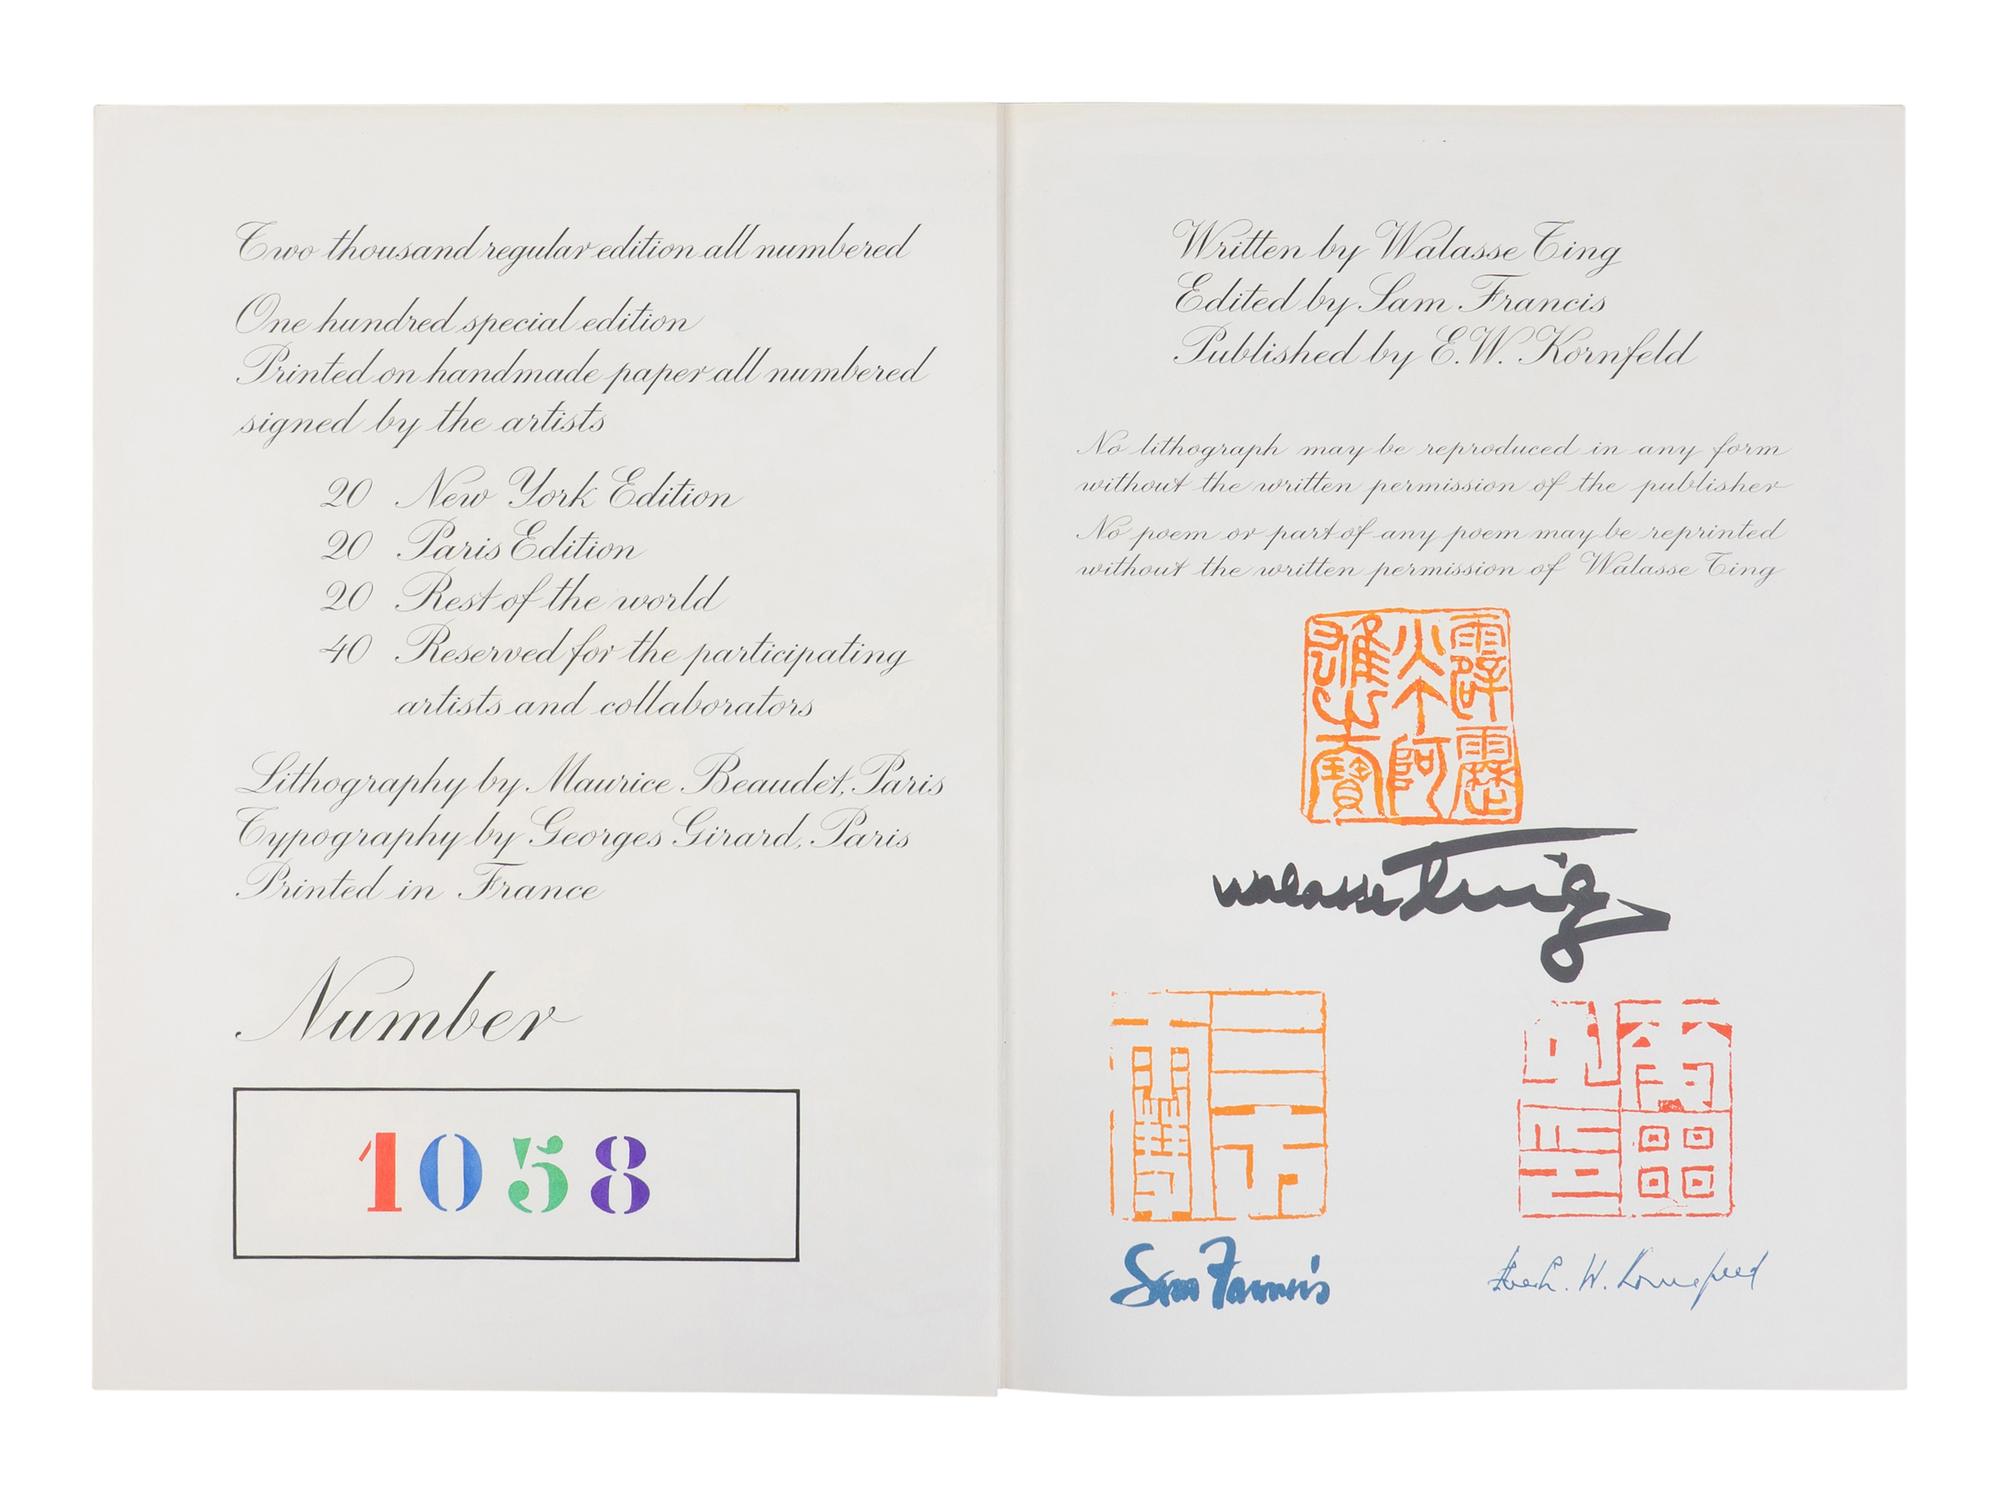 Two thousand regular edition all numbered
One hundred special edition
Printed on handmade paper all numbered
signed by the artists
20 New York Edition
20 Paris Edition
20 Rest of the world
40 Reserved for the participating
artists and collaborators
Lithography by Maurice Beaudet, Paris
Typography by Georges Girard, Paris
Printed in France
Number
1058
Written by Walasse Ting
Edited by Sam Francis
Published by E.W. Kornfeld
No lithograph may be reproduced in any form
without the written permission of the publisher
No poem or part of any poem may be reprinted
without the written permission of Walasse Ting
walasse Ting
Sam Francis
W. Kornfeld